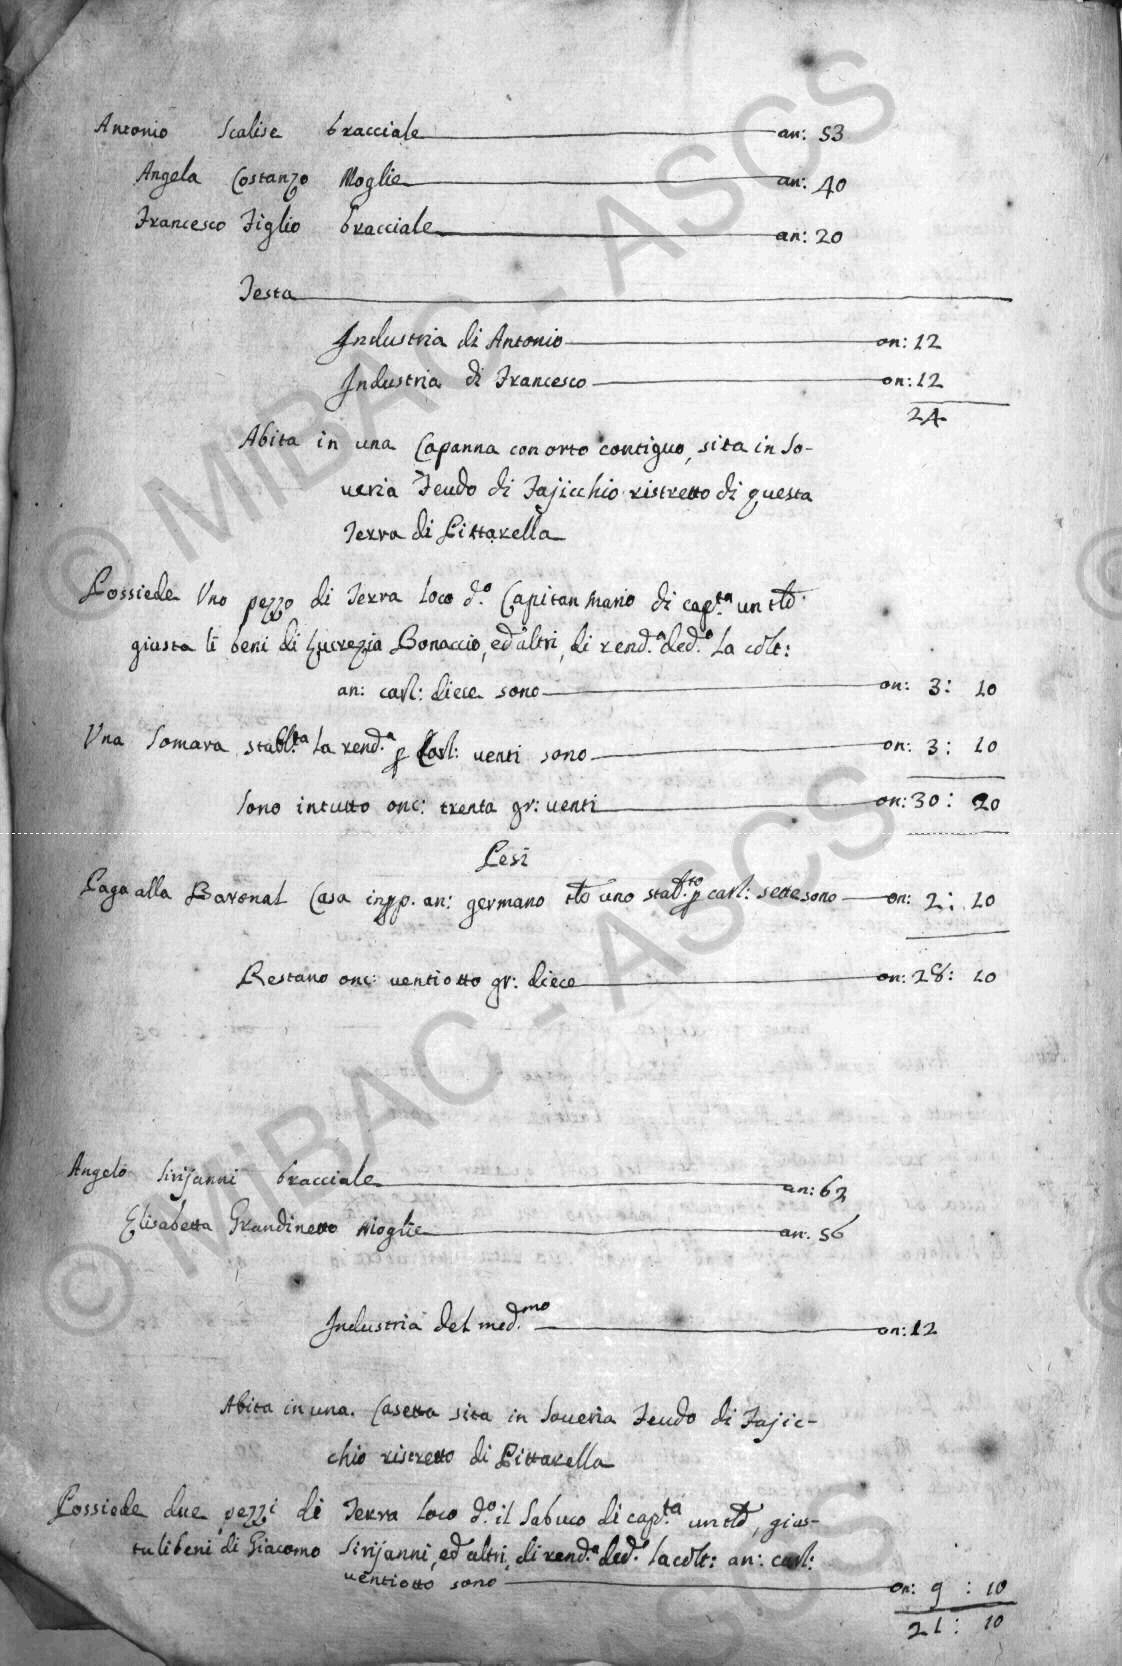 Antonio Scalise bracciale an: 53
Angela Costanzo Moglie an: 40
Francesco Figlio bracciale an: 20
Testa
Industria di Antonio on: 12
Industria di Francesco on: 12
24
Abita in una Capanna con orto contiguo, sita in So-
veria Feudo di Fajicchio ristretto di questa
Terra di Pittarella
Possiede Uno pezzo di Terra loco d.º Capitan Mario di cap.ta un tt.º
giusta li beni di Lucrezia Bonaccio, ed altri, di rend.ª ded.ª la colt:
an: carl: diece sono on: 3: 10
Una Somara stabil.ta la rend.ª p Carl: venti sono on: 3: 10
Sono in tutto onc: trenta gr: venti on: 30: 20
Pesi
Paga alla Baronal Casa in pp. an: germano tt.º uno stab.to p carl: sette sono on: 2: 10
Restano onc: ventiotto gr: diece on: 28: 10
Angelo Sirijanni bracciale an: 62
Elisabetta Grandinetto Moglie an: 56
Industria del med.mo on: 12
Abita in una Casetta sita in Soveria Feudo di Fajic-
chio ristretto di Pittarella
Possiede due pezzi di Terra loco d.º il Sabuco di cap.ta un tt.º, gius-
ta li beni di Giacomo Sirijanni, ed altri, di rend.ª ded.ª la colt: an: carl:
ventiotto sono on: 9: 10
21: 10
© MIBAC - ASCS
© MIBAC - ASCS
ASCS